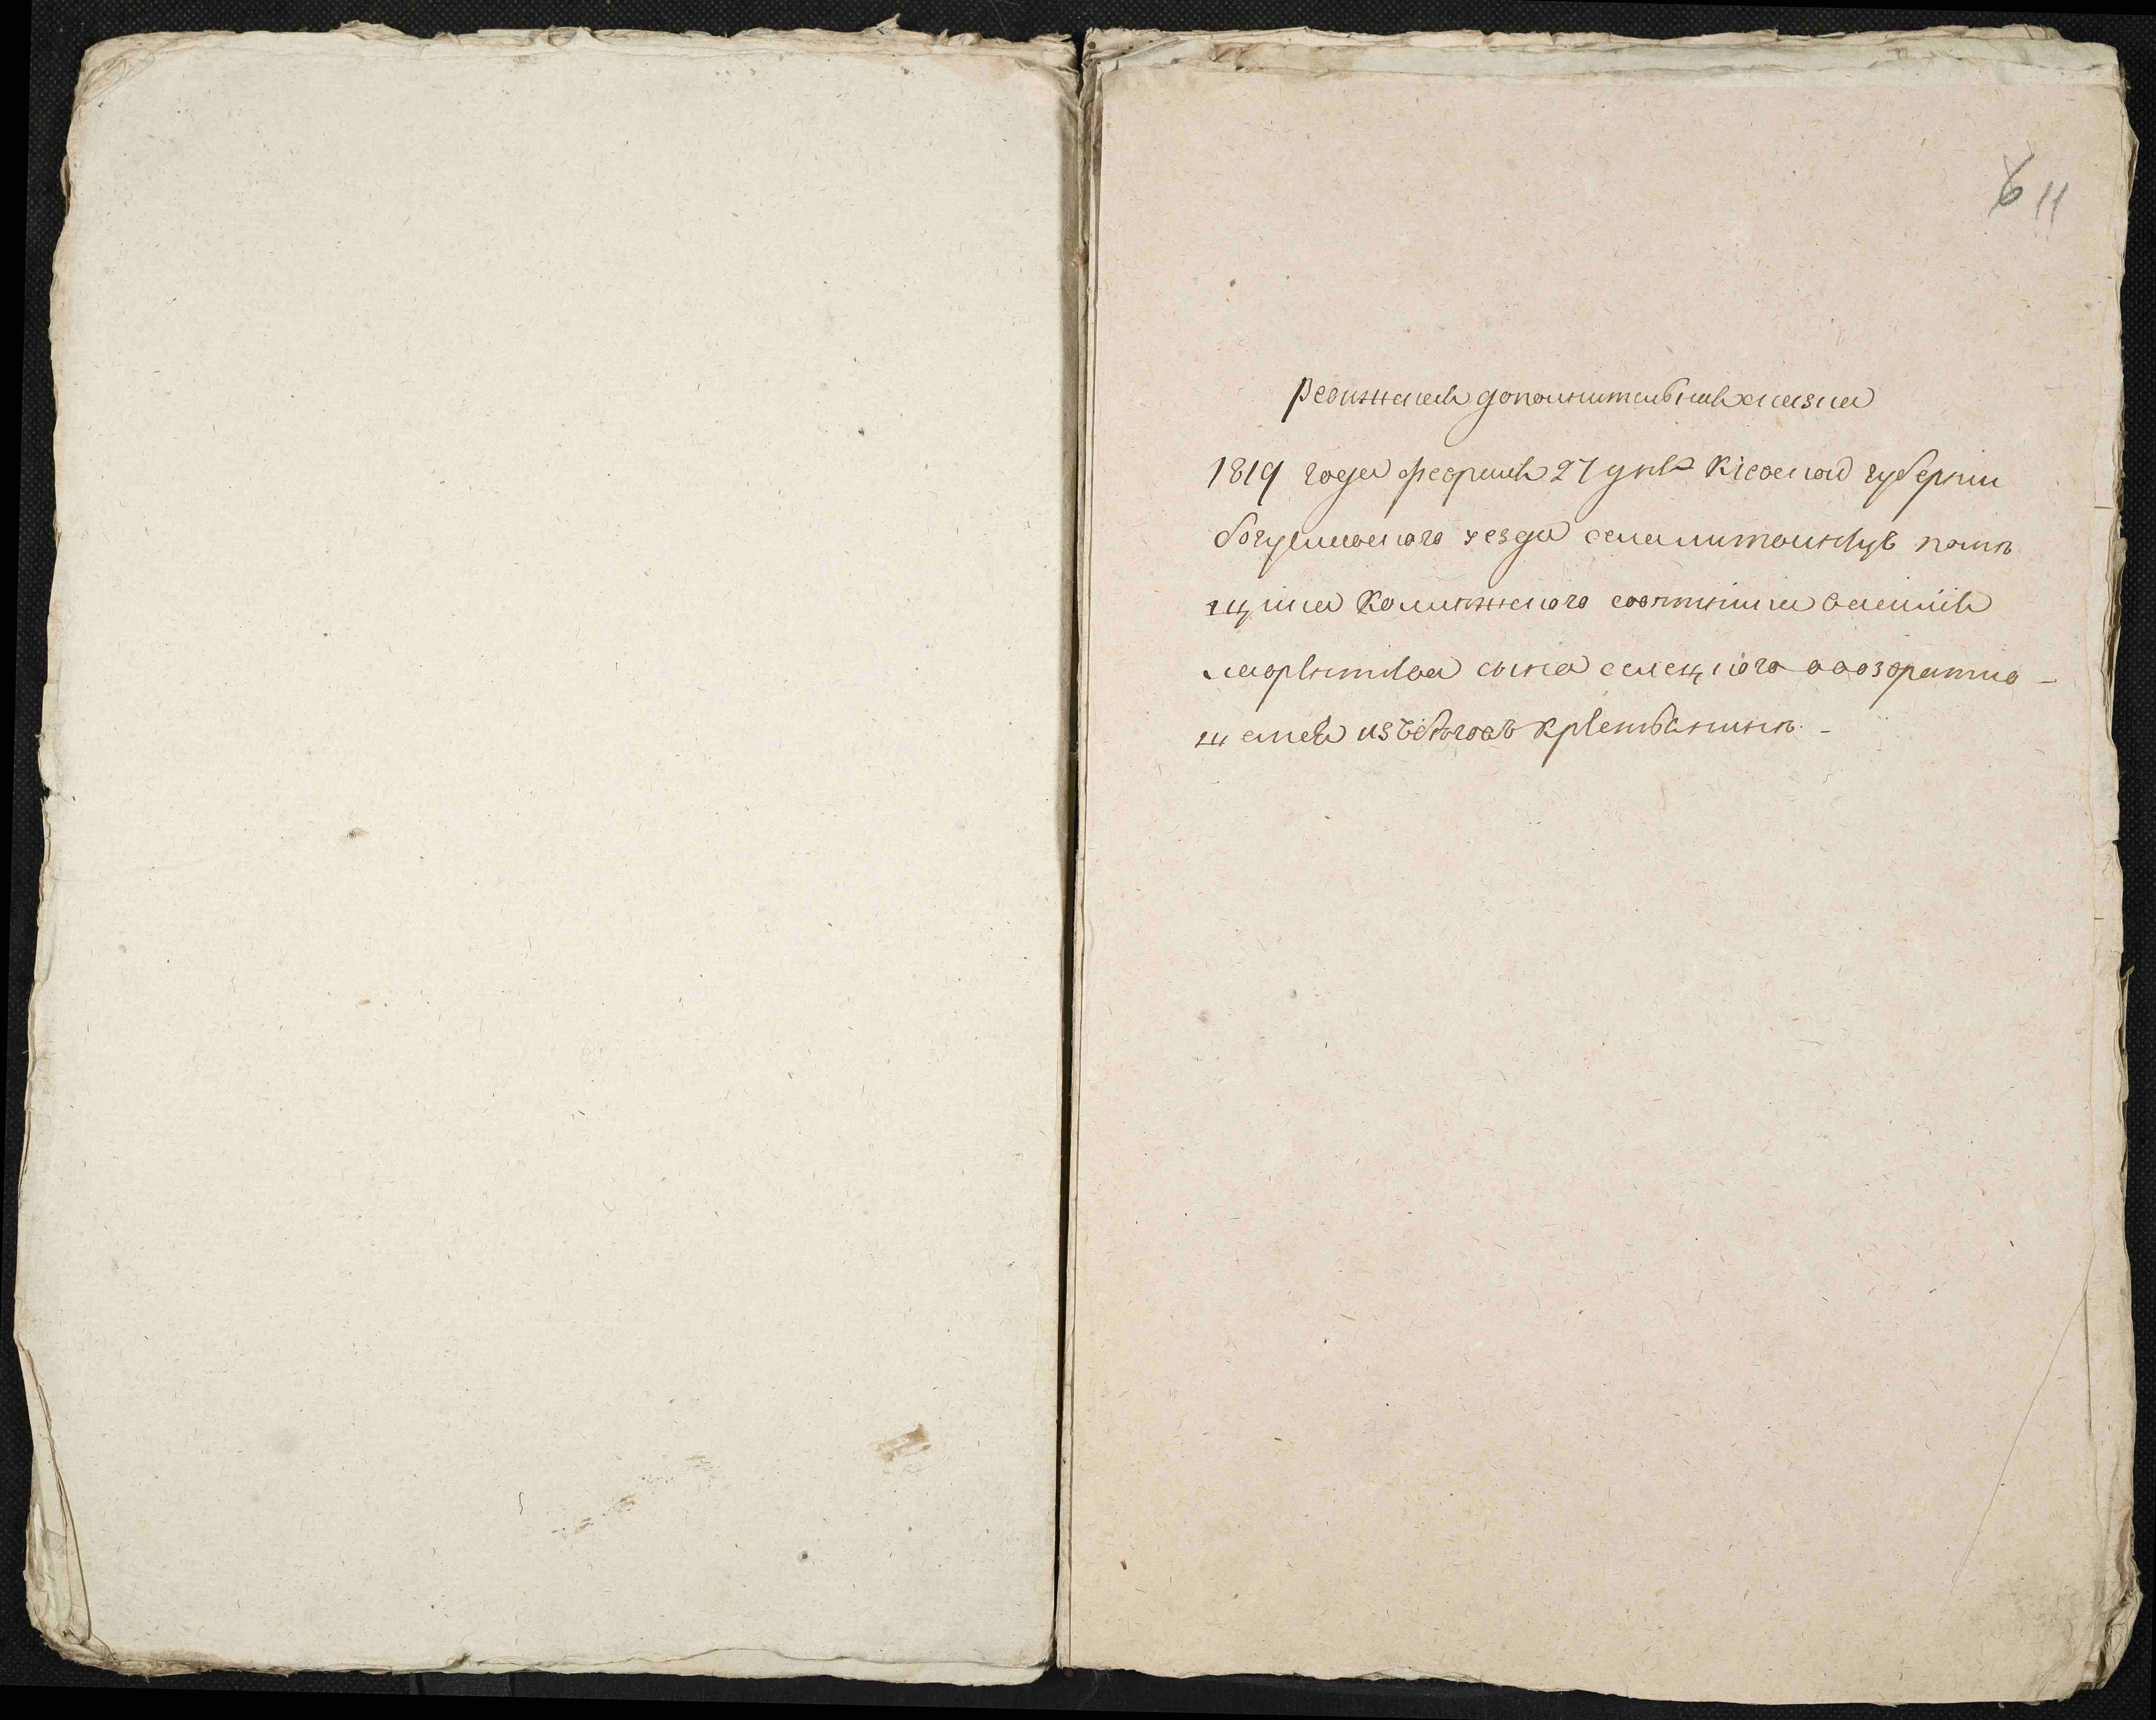 6 11
Ревижская дополнительная сказка
1819 года февраля 27 дня Кіевской губерніи
богуславского уезда села поме
щика Колижского советника василия
сына селецкого о возвратив
шемся изъ бегов крестьянине. -